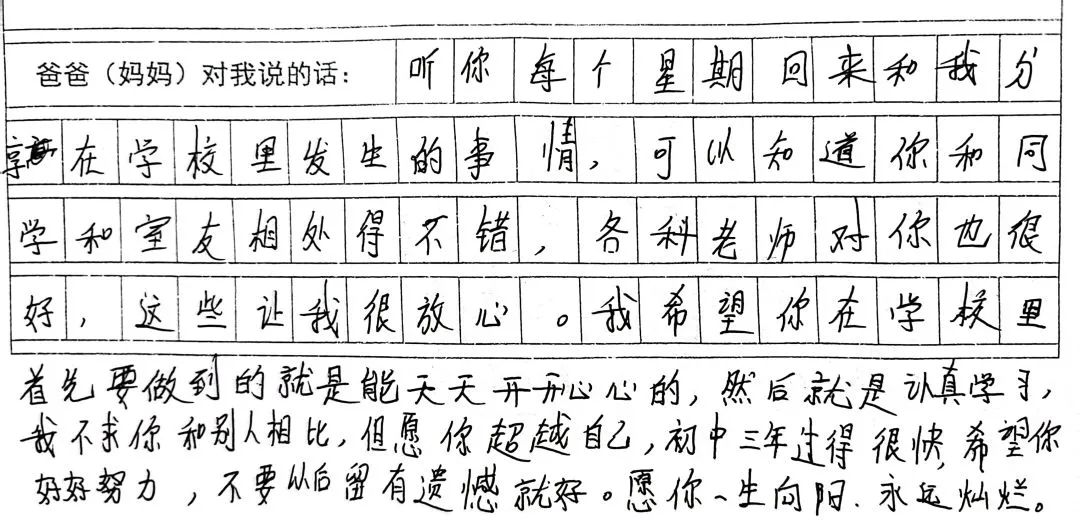 爸爸（妈妈）对我说的话：听你每个星期回来和我分
享在学校里发生的事情，可以知道你和同
学和室友相处得不错，各科老师对你也很
好，这些让我很放心。我希望你在学校里
首先要做到的就是能天天开开心心的，然后就是认真学习，
我不求你和别人相比，但愿你超越自己，初中三年过得很快，希望你
好好努力，不要以后留有遗憾就好。愿你一生向阳．永远灿烂。